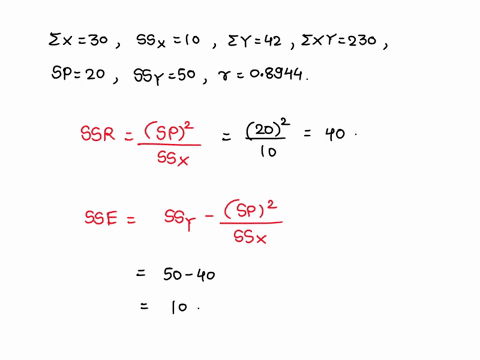 Σx = 30 , SSx = 10 , ΣY = 42 , ΣXY = 230 ,
SP = 20 , SSY = 50 , r = 0.8944 .
SSR = (SP)² / SSX = (20)² / 10 = 40 .
SSE = SSY - (SP)² / SSX
= 50 - 40
= 10 .